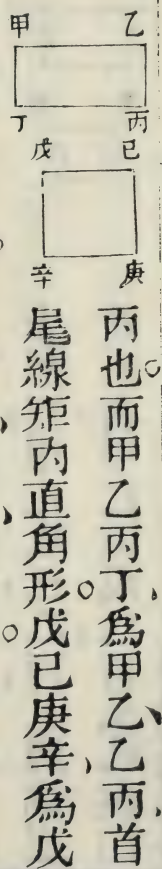 甲 乙
丁 丙
戊 已
辛 庚
丙也。而甲乙丙丁、爲甲乙、乙丙、首
尾線矩内直角形。戊已庚辛、爲戊